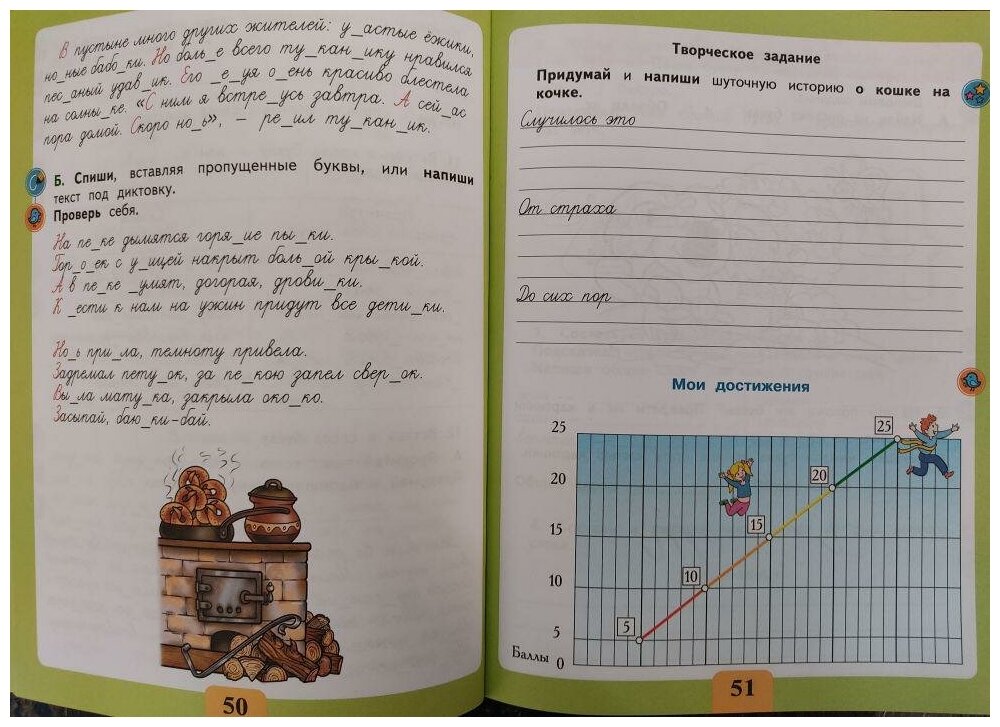 В пустыне много других жителей: у_астые ёжики,
но_ные бабо_ки. Но боль_е всего ту_кан_ику нравился
пес_аный удав_ик. Его _е_уя о_ень красиво блестела
на солны_ке. «С ним я встре_усь завтра. А сей_ас
пора домой. Скоро но_ь», – ре_ил ту_кан_ик.
Б. Спиши, вставляя пропущенные буквы, или напиши
текст под диктовку.
Проверь себя.
На пе_ке дымятся горя_ие пы_ки.
Гор_о_ек с у_ицей накрыт боль_ой кры_кой.
А в пе_ке _умят, догорая, дрови_ки.
К _ести к нам на ужин придут все дети_ки.
Но_ь при_ла, темноту привела.
Задремал пету_ок, за пе_кою запел свер_ок.
Вы_ла мату_ка, закрыла око_ко.
Засыпай, баю_ки-бай.
50
Творческое задание
Придумай и напиши шуточную историю о кошке на
кочке.
Случилось это
От страха
До сих пор
Мои достижения
25
20
15
10
5
Баллы 0
5
10
15
20
25
51